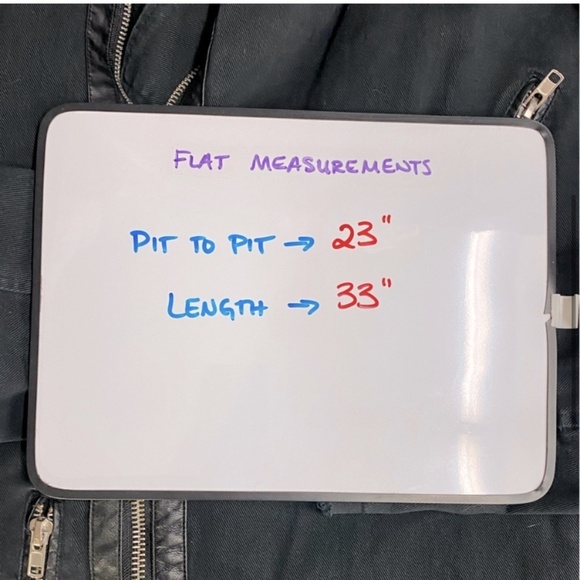 FLAT MEASUREMENTS
PIT TO PIT → 23"
LENGTH → 33"